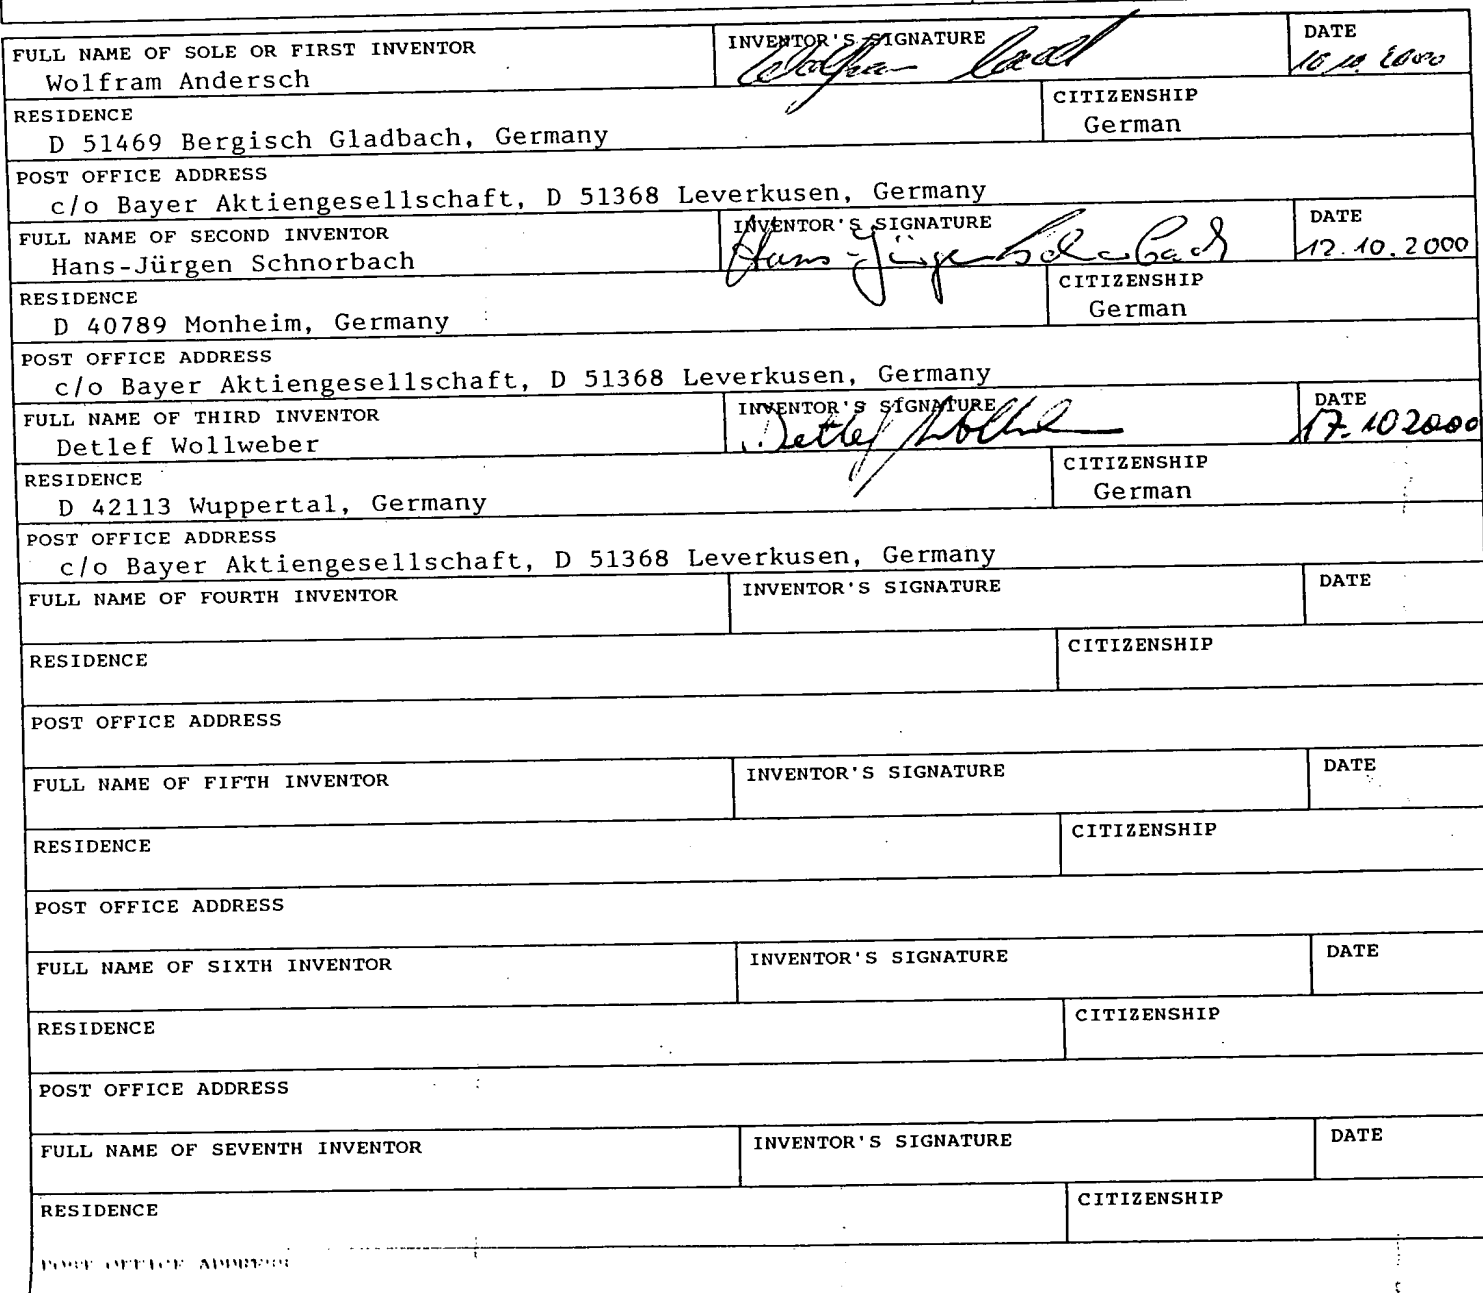 FULL NAME OF SOLE OR FIRST INVENTOR INVENTOR'S SIGNATURE DATE
Wolfram Andersch Wolfram 10.10.2000
RESIDENCE CITIZENSHIP
D 51469 Bergisch Gladbach, Germany German
POST OFFICE ADDRESS
c/o Bayer Aktiengesellschaft, D 51368 Leverkusen, Germany
FULL NAME OF SECOND INVENTOR INVENTOR'S SIGNATURE DATE
Hans-Jürgen Schnorbach Hans-Jürgen Schnorbach 12.10.2000
RESIDENCE CITIZENSHIP
D 40789 Monheim, Germany German
POST OFFICE ADDRESS
c/o Bayer Aktiengesellschaft, D 51368 Leverkusen, Germany
FULL NAME OF THIRD INVENTOR INVENTOR'S SIGNATURE DATE
Detlef Wollweber Detlef 17.10 2000
RESIDENCE CITIZENSHIP
D 42113 Wuppertal, Germany German
POST OFFICE ADDRESS
c/o Bayer Aktiengesellschaft, D 51368 Leverkusen, Germany
FULL NAME OF FOURTH INVENTOR INVENTOR'S SIGNATURE DATE
RESIDENCE CITIZENSHIP
POST OFFICE ADDRESS
FULL NAME OF FIFTH INVENTOR INVENTOR'S SIGNATURE DATE
RESIDENCE CITIZENSHIP
POST OFFICE ADDRESS
FULL NAME OF SIXTH INVENTOR INVENTOR'S SIGNATURE DATE
RESIDENCE CITIZENSHIP
POST OFFICE ADDRESS
FULL NAME OF SEVENTH INVENTOR INVENTOR'S SIGNATURE DATE
RESIDENCE CITIZENSHIP
POST OFFICE ADDRESS